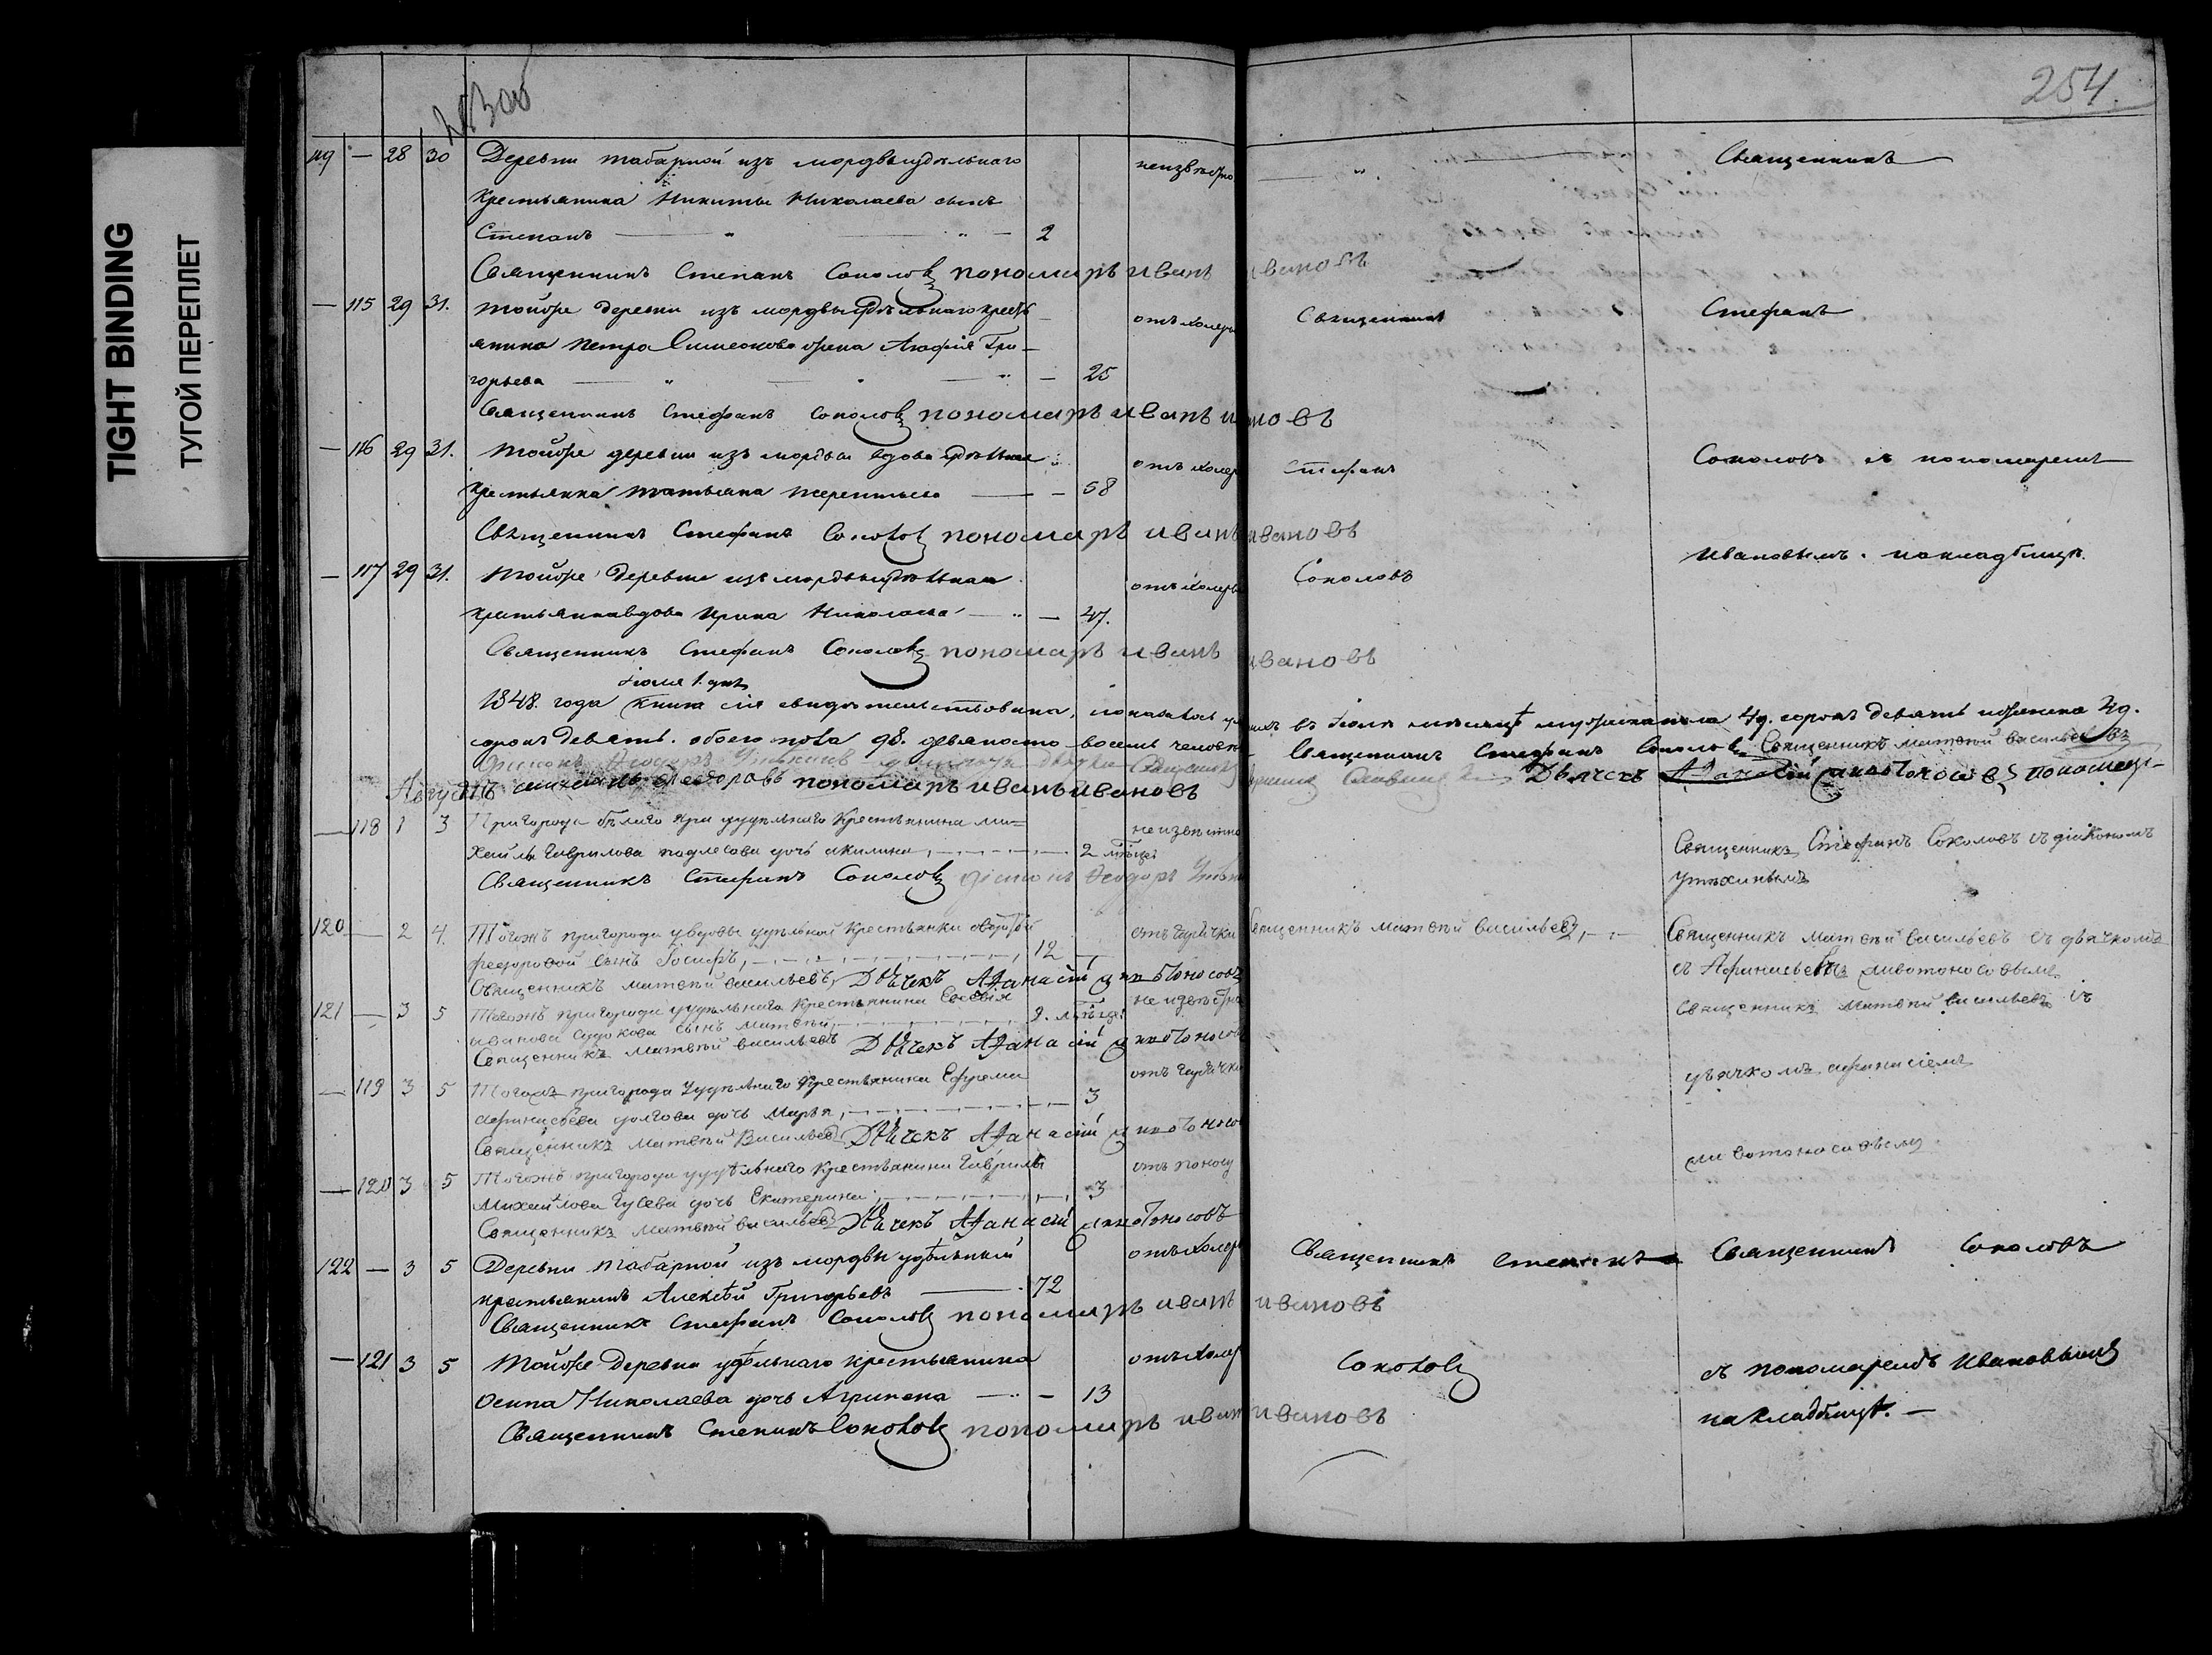 TIGHT BINDING
ТУГОЙ ПЕРЕПЛЕТ
254.
119 — 28 30 Деревни табарной изъ мордвы удѣльнаго неизвѣстно Священникъ
крестьянина Никиты Николаева сынъ
Степанъ — 2
Священникъ Степанъ Соколовъ пономарь иванъ ивановъ
— 115 29 31. тойже деревни изъ мордвы удѣльнаго кресть отъ холеры Священникъ Стефанъ
янина Петра Симеонова жена Агафія Гри-
горьева — 25
Священникъ Стефанъ Соколовъ пономарь иванъ ивановъ
— 116 29 31. тойже деревни изъ мордвы вдова удѣльная отъ холеры Стефанъ Соколовъ съ пономаремъ
крестьянка татьяна терентьева — 58
Священникъ Стефанъ Соколовъ пономарь иванъ ивановъ
Ивановымъ. на кладбищѣ.
— 117 29 31. тойже деревни изъ мордвы удѣльная отъ холеры Соколовъ
крестьянка вдова Ирина Николаева — 47.
Священникъ Стефанъ Соколовъ пономарь иванъ ивановъ
Июля 1. дня
1848. года книга сія свидѣтельствована, въ Іюлѣ мѣсяцѣ мужеска пола 49. сорокъ девять и женска 49.
сорокъ девять. обоего пола 98. девяносто восемь человекъ Священникъ Стефанъ Соколовъ Священникъ матвѣй васильевъ
Дьячекъ Афанасій пономарь
Августъ Феодоровъ пономарь иванъ ивановъ
— 118 1 3 Пригорода бѣлаго яри удѣльнаго Крестьянина ми= не извѣстно
хайлы Гаврилова дочь акилина, — 2 мѣсяц. Священникъ Стефанъ Соколовъ съ діакономъ
Священникъ Стефанъ Соколовъ діаконъ Феодоръ Утѣхинымъ
120 — 2 4. Тогожъ пригорода у вдовы удѣльной Крестьянки отъ горячки Священникъ матвѣй васильевъ, Священникъ матвѣй васильевъ съ дьячкомъ
федоровой сынъ Іосифъ, — 12 —
Священникъ матвѣй васильевъ, Дьячекъ Афанасій животоносовъ съ Афанасьемъ животоносовымъ
121 — 3 5 Тогожъ пригорода удѣльнаго Крестьянина Евсѣвія не извѣстно Священникъ матвѣй васильевъ съ
иванова сынъ матвѣй, — 2. мѣсяц.
Священникъ матвѣй васильевъ Дьячекъ Афанасій животоносовъ
— 119 3 5 Тогожъ пригорода Удѣльнаго Крестьянина Ефрема отъ горячки дьячкомъ афанасіемъ
афанасьева долгова дочь Марья, — 3
Священникъ матвѣй Васильевъ Дьячекъ Афанасій животоносовъ
— 120 3 5 Тогожъ пригорода удѣльнаго Крестьянина Гаврилы отъ поносу животоносовымъ
михаилова Гусева дочь Екатерина, — 3
Священникъ матвѣй васильевъ Дьячекъ Афанасій животоносовъ
122 — 3 5 Деревни табарной изъ мордвы удѣльный отъ холеры Священникъ Степанъ Священникъ Соколовъ
крестьянинъ Алексѣй Григорьевъ — 72
Священникъ Стефанъ Соколовъ пономарь иванъ ивановъ
— 121 3 5 Тойже деревни удѣльнаго крестьянина отъ холеры Соколовъ съ пономаремъ Ивановымъ
Осипа Николаева дочь Агрипена — 13
на кладбищѣ. —
Священникъ Степанъ Соколовъ пономарь иванъ ивановъ